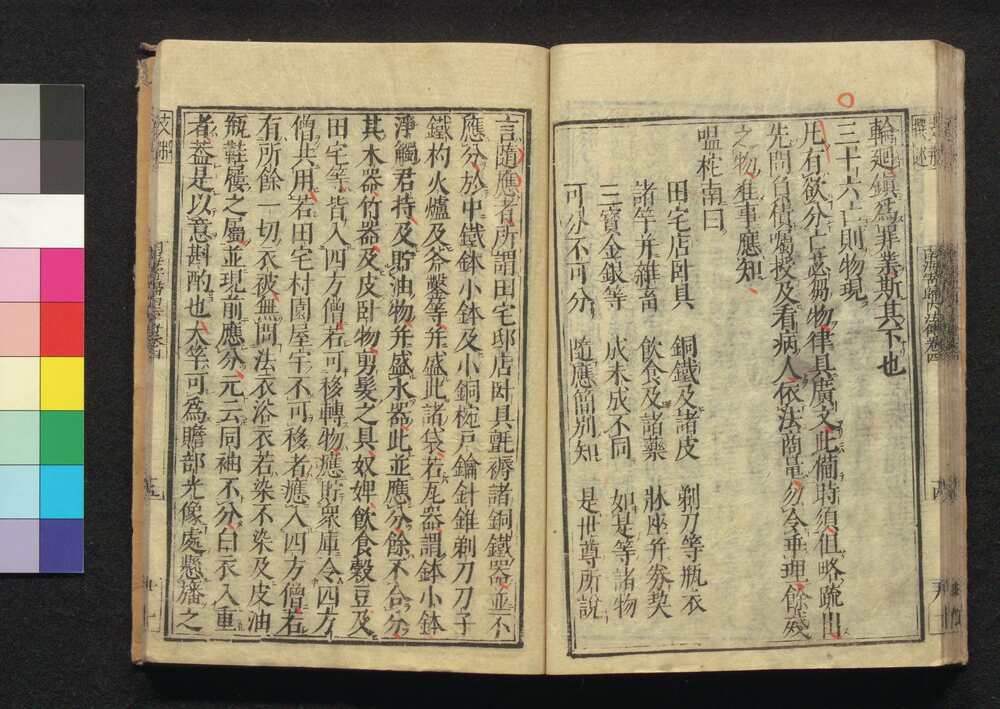 輪廻鎮為罪業斯其下也
三十六亡則物現
凡有欲分亡苾芻物律具廣文此備時須但略疏出
先問負債囑授及看病人依法商量勿令乖理餘殘
之物准事應知
嗢柁南曰
田宅店臥具 銅鐵及諸皮 剃刀等瓶衣
諸竿并雜畜 飲食及諸藥 牀座并券契
三寶金銀等 成未成不同 如是等諸物
可分不可分 隨應簡別知 是世尊所說
言隨應者所謂田宅邸店臥具氈褥諸銅鐵器並不
應分於中鐵鉢小鉢及小銅椀戶鑰針錐剃刀刀子
鐵杓火爐及斧鑿等并盛此諸袋若瓦器謂鉢小鉢
淨觸君持及貯油物并盛水器此並應分餘不合分
其木器竹器及皮臥物剪髮之具奴婢飲食穀豆及
田宅等皆入四方僧若可移轉物應貯衆庫令四方
僧共用若田宅村園屋宇不可移者應入四方僧若
有所餘一切衣被無問法衣浴衣若染不染及皮油
瓶鞋屨之屬並現前應分元云同袖不分白衣入重
者蓋是以意斟酌也大竿可為贍部光像處懸旛之